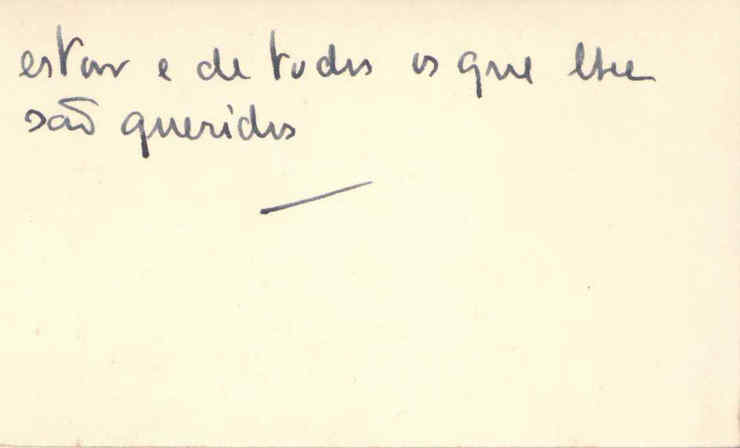 estar e de todos os que lhe
são queridos